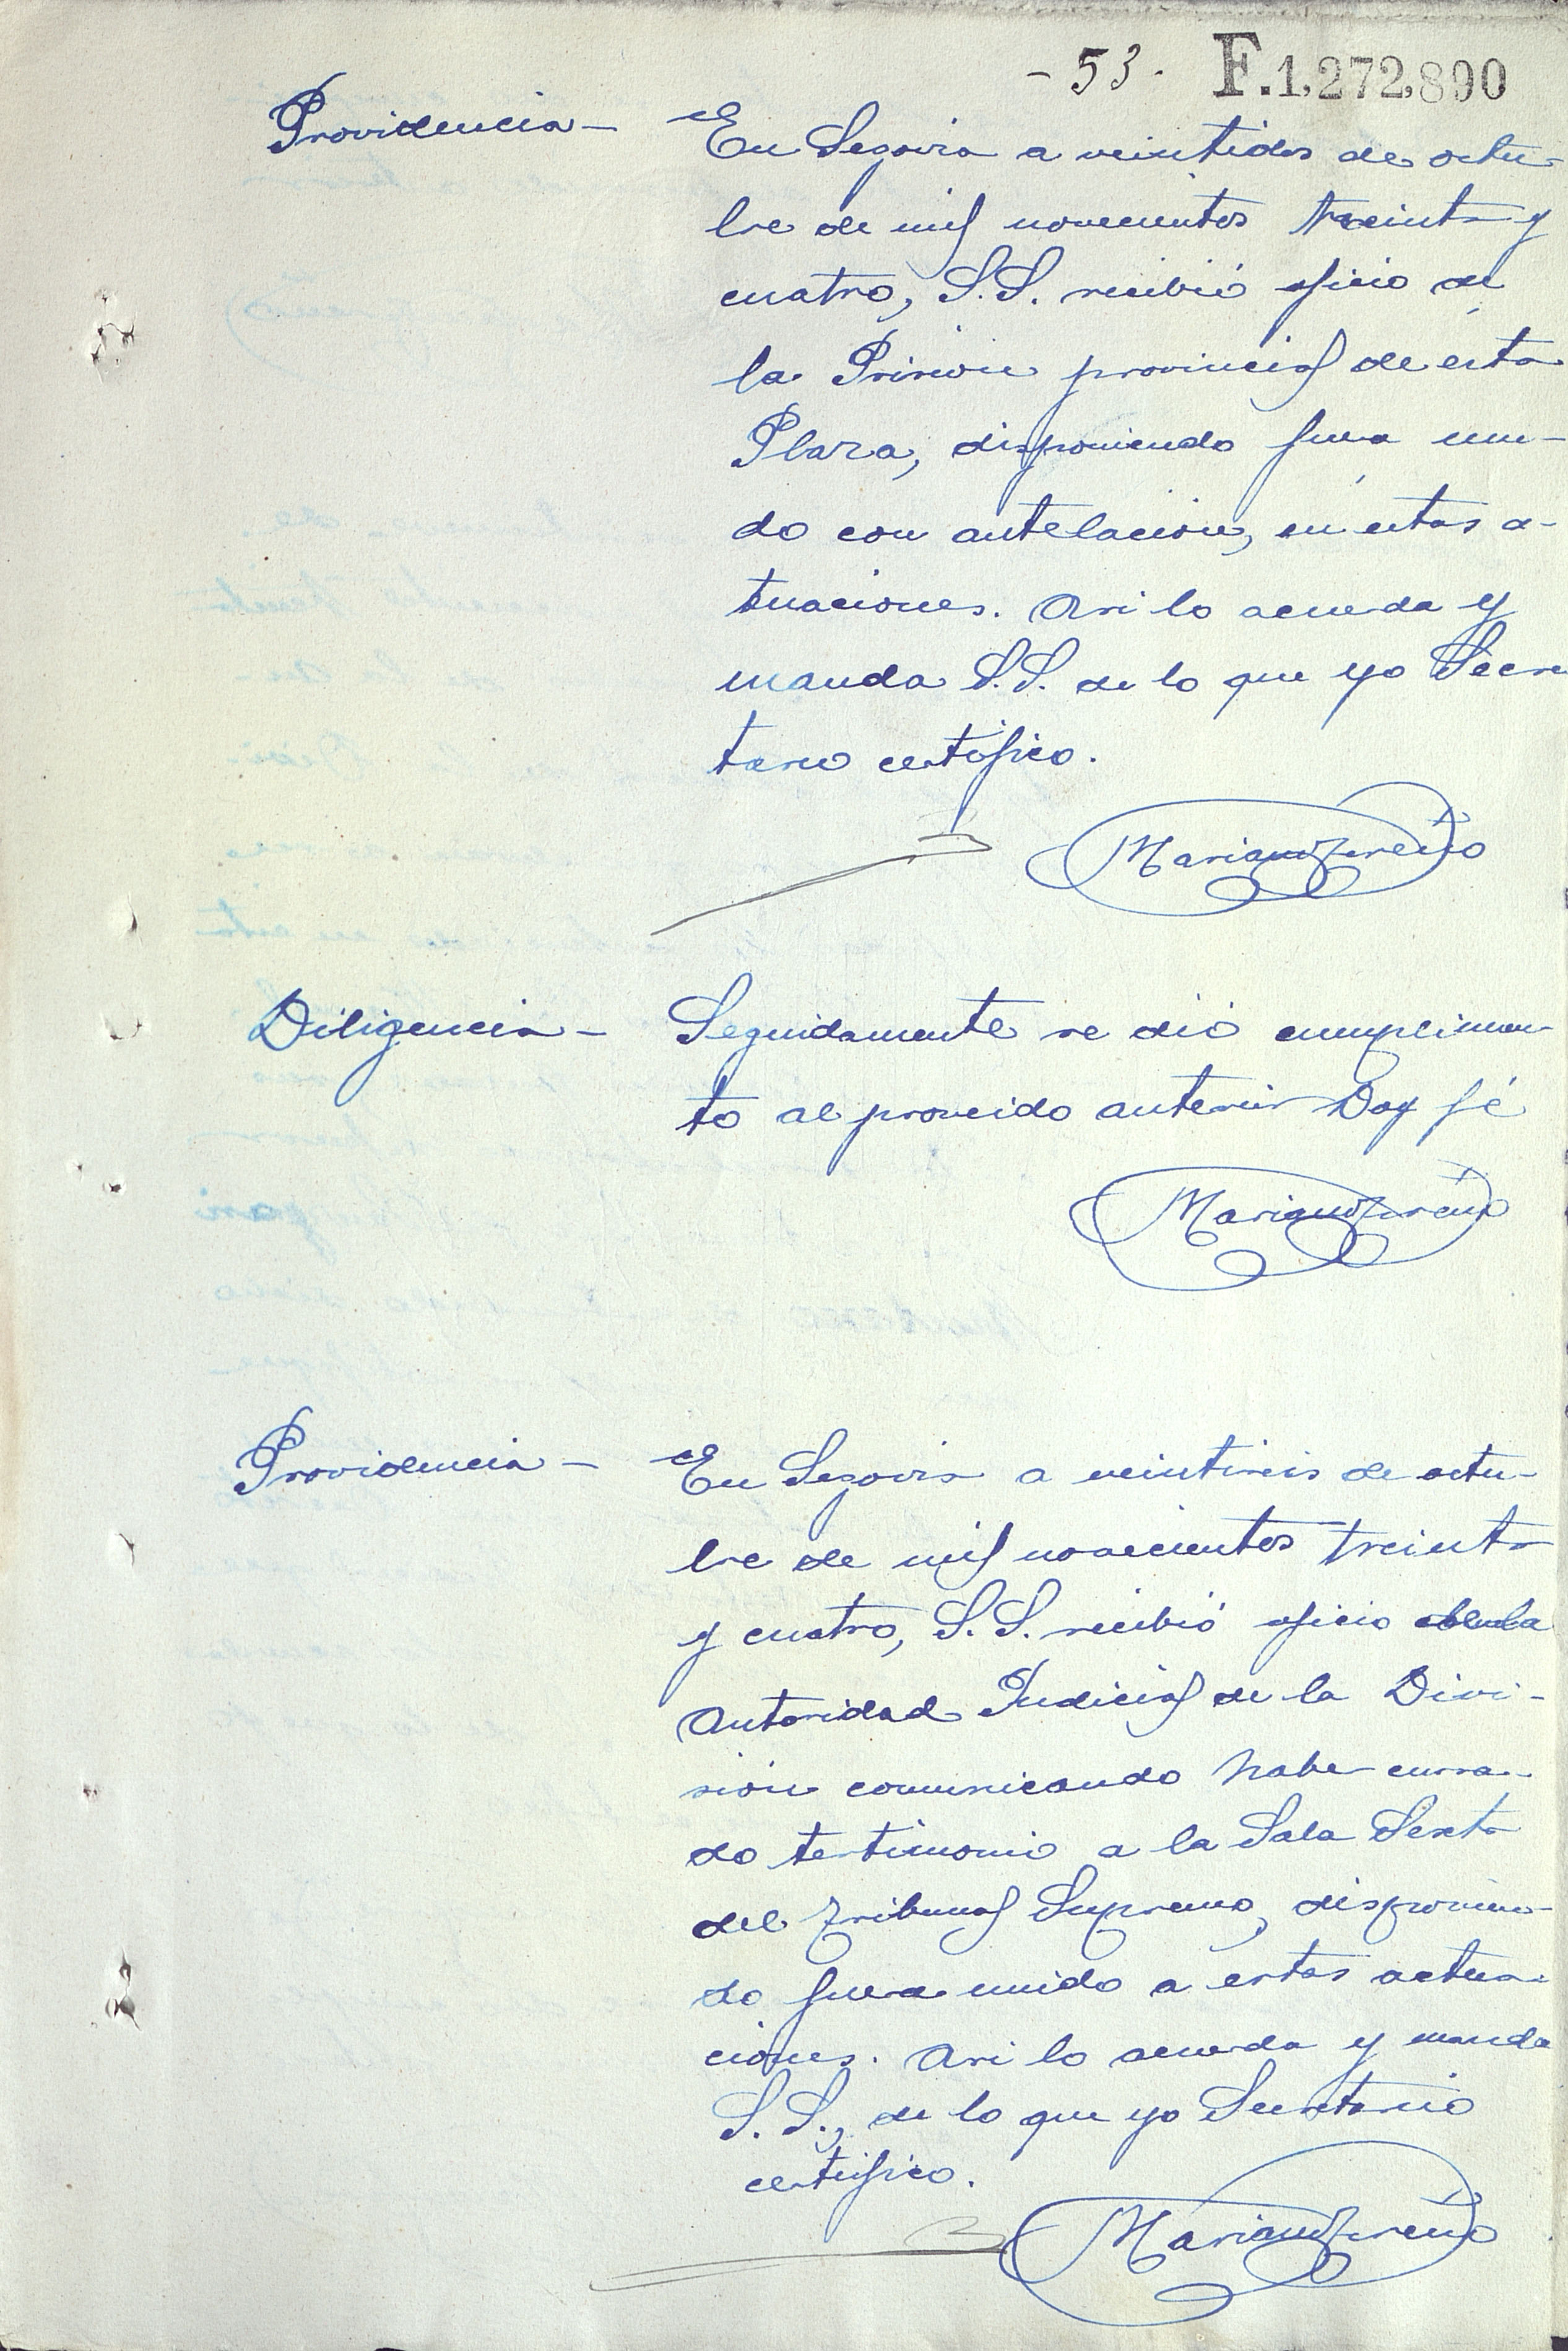 - 53 - F.1,272,890
Providencia - En Segovia a veintidos de octu-
bre de mil novecientos treinta y
cuatro, S.S. recibió oficio de
la Prisión provincial de esta
Plaza, disponiendo fuera uni-
do con antelación, en estas a-
tuaciones. Asi lo acuerda y
manda S.S. de lo que yo Secre
tario certifico.
Mariano
Diligencia - Seguidamente se dió cumplimien-
to al proveido anterior Doy fé
Mariano
Providencia - En Segovia a veintiseis de octu-
bre de mil novecientos treinta
y cuatro, S.S. recibió oficio de la
Autoridad Judicial de la Divi-
sión comunicando haber cursa-
do testimonio a la Sala Sexta
del Tribunal Supremo, disponien-
do fuera unido a estas actua-
ciones. Asi lo acuerda y manda
S.S., de lo que yo Secretario
certifico.
Mariano